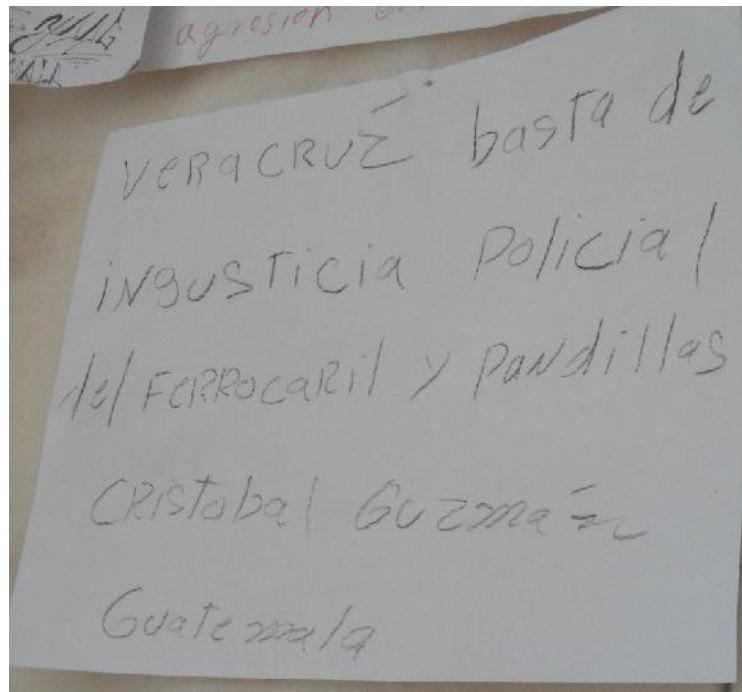 agresion
VERaCRUZ basta de
iNgusticia Policial
del FERROcaRil y PaNdillas
CRistobal Guzmán
Guatemala